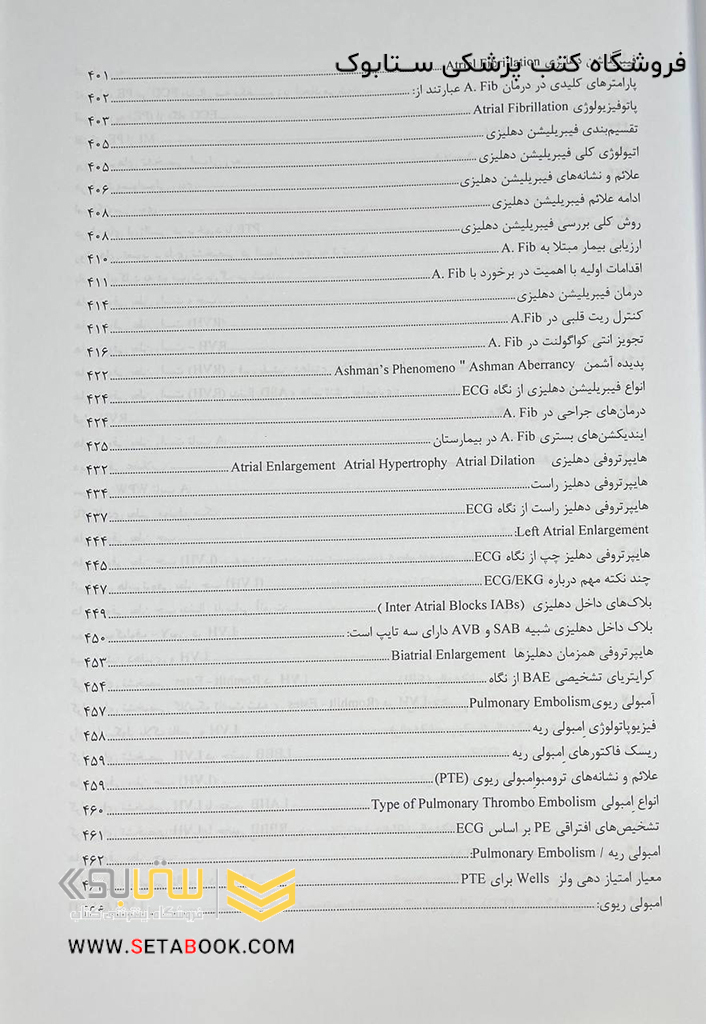 فروشگاه کتب پزشکی ستابوک
Atrial Fibrillation ۴۰۱
پارامترهای کلیدی در درمان A. Fib عبارتند از: ۴۰۲
پاتوفیزیولوژی Atrial Fibrillation ۴۰۳
تقسیم‌بندی فیبریلیشن دهلیزی ۴۰۵
اتیولوژی کلی فیبریلیشن دهلیزی ۴۰۵
علائم و نشانه‌های فیبریلیشن دهلیزی ۴۰۶
ادامه علائم فیبریلیشن دهلیزی ۴۰۸
روش کلی بررسی فیبریلیشن دهلیزی ۴۰۸
ارزیابی بیمار مبتلا به A. Fib ۴۱۰
اقدامات اولیه با اهمیت در برخورد با A. Fib ۴۱۱
درمان فیبریلیشن دهلیزی ۴۱۴
کنترل ریت قلبی در A.Fib ۴۱۴
تجویز انتی کواگولنت در A. Fib ۴۱۶
پدیده آشمن Ashman's Phenomeno " Ashman Aberrancy ۴۲۲
انواع فیبریلیشن دهلیزی از نگاه ECG ۴۲۴
درمان‌های جراحی در A. Fib ۴۲۴
ایندیکشن‌های بستری A. Fib در بیمارستان ۴۲۵
هایپرتروفی دهلیزی Atrial Enlargement Atrial Hypertrophy Atrial Dilation ۴۳۲
هایپرتروفی دهلیز راست ۴۳۴
هایپرتروفی دهلیز راست از نگاه ECG ۴۳۷
Left Atrial Enlargement: ۴۴۴
هایپرتروفی دهلیز چپ از نگاه ECG ۴۴۵
چند نکته مهم درباره ECG/EKG ۴۴۷
بلاک‌های داخل دهلیزی (Inter Atrial Blocks IABs ) ۴۴۹
بلاک داخل دهلیزی شبیه SAB و AVB دارای سه تایپ است: ۴۵۰
هایپرتروفی همزمان دهلیزها Biatrial Enlargement ۴۵۳
کرایتریای تشخیصی BAE از نگاه ۴۵۴
آمبولی ریوی Pulmonary Embolism ۴۵۷
فیزیوپاتولوژی اِمبولی ریه ۴۵۸
ریسک فاکتورهای اِمبولی ریه ۴۵۹
علائم و نشانه‌های ترومبوامبولی ریوی (PTE) ۴۵۹
انواع اِمبولی Type of Pulmonary Thrombo Embolism ۴۶۰
تشخیص‌های افتراقی PE بر اساس ECG ۴۶۱
امبولی ریه / Pulmonary Embolism: ۴۶۲
معیار امتیاز دهی ولز Wells برای PTE
امبولی ریوی:
ستابوک
WWW.SETABOOK.COM